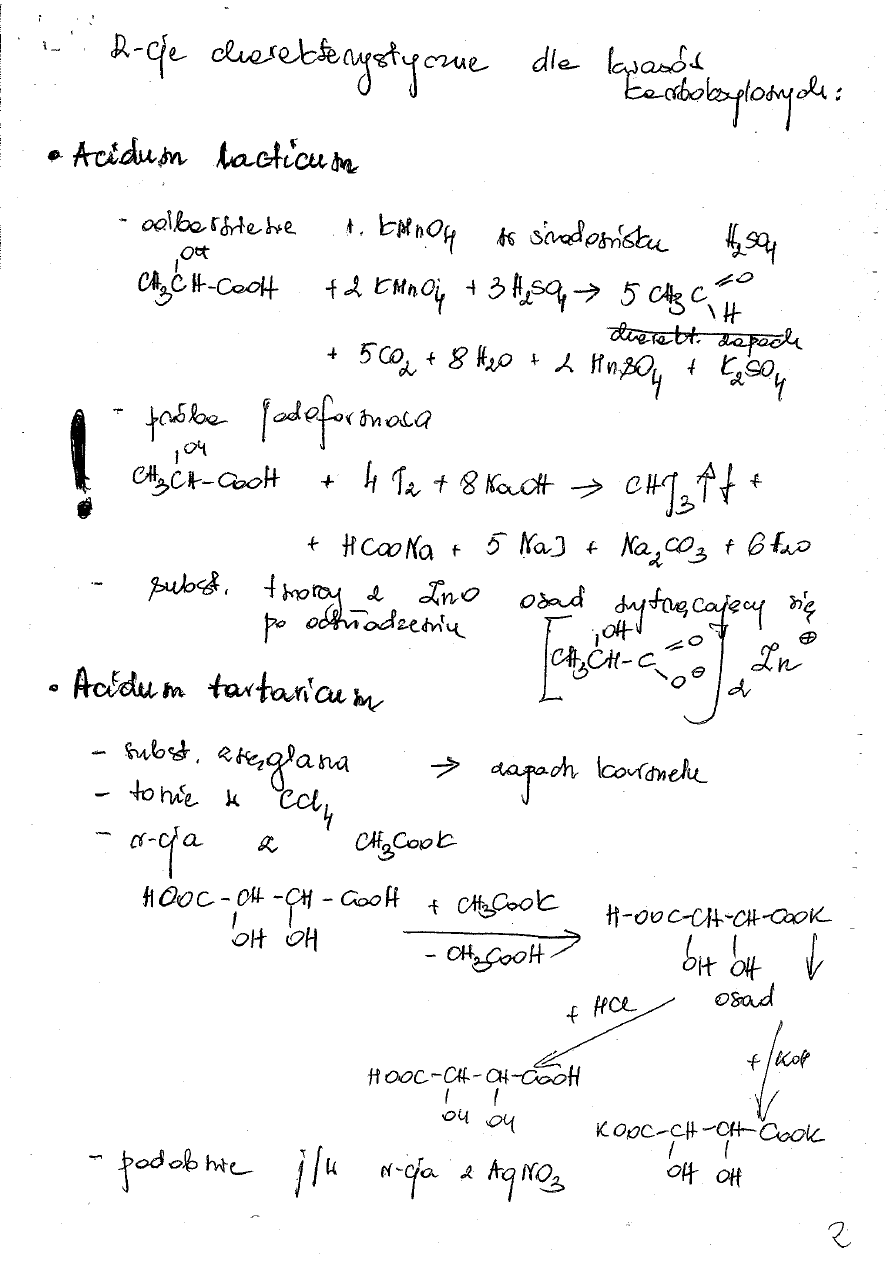 R-cje charakterystyczne dla kwasów
karboksylowych:
• Acidum lacticum
- odbarwianie r. KMnO4 w środowisku H2SO4
OH
CH3CH-COOH + 2 KMnO4 + 3 H2SO4 → 5 CH3C =O
\H
charakt. zapach
+ 5CO2 + 8 H2O + 2 MnSO4 + K2SO4
- próba jodoformowa
! OH
CH3CH-COOH + 4 J2 + 8 NaOH → CHJ3 ↑↓ +
+ HCOONa + 5 NaJ + Na2CO3 + 6 H2O
- subst. tworzy z ZnO osad wytrącający się
po ochłodzeniu
[CH3CH-C =O O⊖]2 Zn⊕
OH
• Acidum tartaricum
- subst. zwęglana → zapach karmelu
- tonie w CCl4
- r-cja z CH3COOK
HOOC-CH-CH-COOH + CH3COOK H-OOC-CH-CH-COOK
OH OH - CH3COOH → OH OH ↓
+ HCl osad
+ KOH
HOOC-CH-CH-COOH
OH OH
KOOC-CH-CH-COOK
OH OH
- podobnie j/w r-cja z AgNO3
2